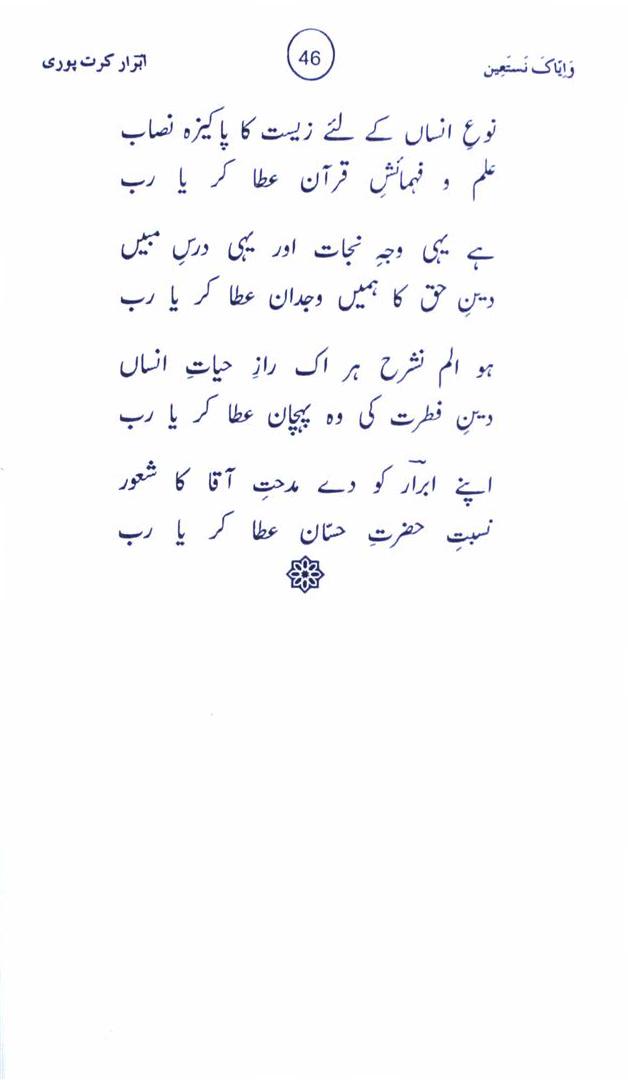 وَاِیّاکَ نَستَعِین 46 ابؔرار کرت پوری
نوعِ انساں کے لئے زیست کا پاکیزہ نصاب
علم و فہمائشِ قرآن عطا کر یا رب
ہے یہی وجہِ نجات اور یہی درسِ مبیں
دینِ حق کا ہمیں وجدان عطا کر یا رب
ہو الم نشرح ہر اک رازِ حیاتِ انساں
دینِ فطرت کی وہ پہچان عطا کر یا رب
اپنے ابرارؔ کو دے مدحتِ آقا کا شعور
نسبتِ حضرتِ حسّان عطا کر یا رب